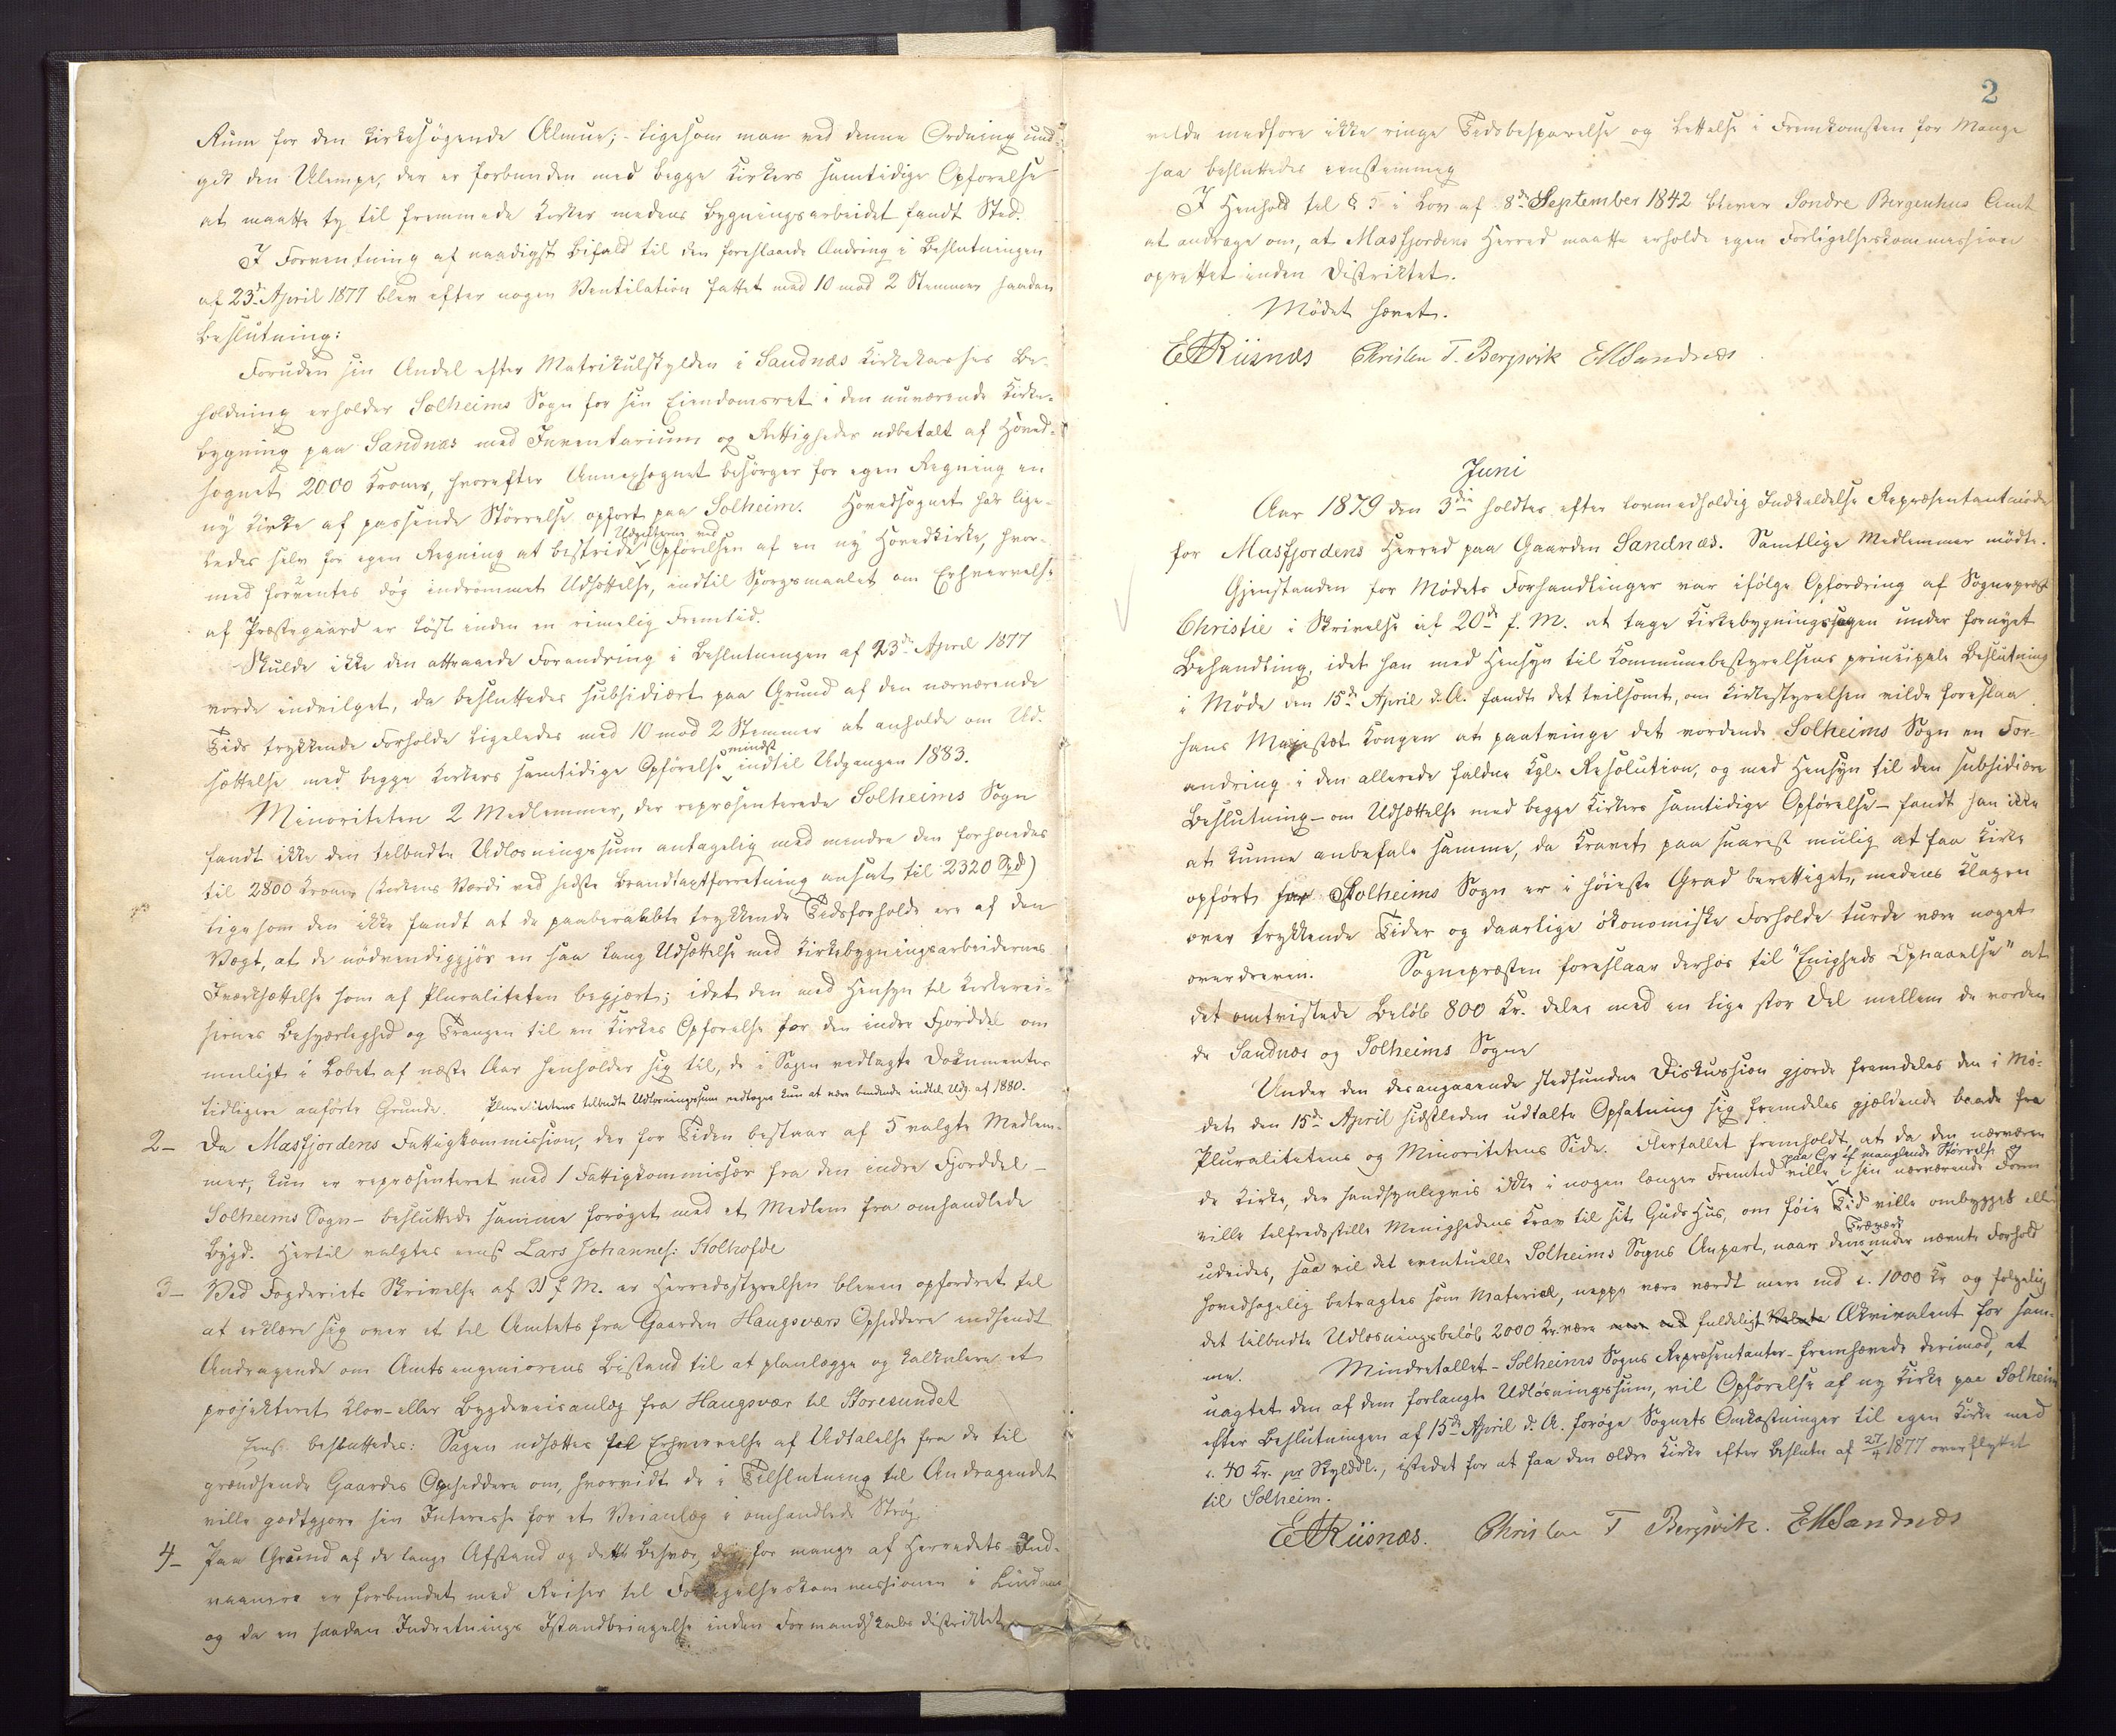 Rum for den kirkesøgende Almue; ligesom man ved denne Ordning und-
gik den Ulempe, der er forbunden med begge Kirkers samtidige Opførelse
at maatte ty til fremmede Kirker medens Bygningsarbeidet fandt Sted.
I Forventning af naadigst Bifald til den foreslaaede Ændring i Beslutningen
af 23de April 1877 blev efter nogen Ventilation fattet med 10 mod 2 Stemmer saadan
Beslutning:
Foruden sin Andel efter Matrikulskylden i Sandnæs Kirkekasses Be-
holdning erholder Solheims Sogn for sin Eiendomsret i den nuværende Kirke-
bygning paa Sandnæs med Inventarium og Rettigheder udbetalt af Hoved-
sognet 2000 Kroner, hvorefter Annexsognet besørger for egen Regning en
ny Kirke af passende Størrelse opført paa Solheim. Hovedsognet har lige-
ledes selv for egen Regning at bestride Udgifterne ved Opførelsen af en ny Hovedkirke, hvor-
med forventes dog indrømmet Udsættelse, indtil Spørgsmaalet om Erhvervelse
af Præstegaard er løst inden en rimelig Fremtid.
Skulde ikke den attraaede Forandring i Beslutningen af 23de April 1877
vorde indvilget, da besluttedes subsidiært paa Grund af den nærværende
Tids trykkende Forholde ligeledes med 10 mod 2 Stemmer at anholde om Ud-
sættelse med begge Kirkers samtidige Opførelse mindst indtil Udgangen 1883.
Minoriteten 2 Medlemmer, der repræsenterede Solheims Sogn
fandt ikke den tilbudte Udløsningssum antagelig med mindre den forhøiedes
til 2800 Kroner (Kirkens Værdi ved sidste Brandtaxtforretning ansat til 2320 Spd)
ligesom den ikke fandt at de paaberaabte trykkende Tidsforholde ere af den
Vægt, at de nødvendiggjør en saa lang Udsættelse med Kirkebygningsarbeidernes
Iværksættelse som af Pluraliteten begjært; idet den med Hensyn til Kirkerei-
sernes Besværlighed og Trangen til en Kirkes Opførelse for den indre Fjorddel om
muligt i Løbet af næste Aar henholder sig til, de i Sagen vedlagte Dokumenter
tidligere anførte Grunde. Pluralitetens tilbudte Udløsningssum vedtoges kun at være bindende indtil Udg. af 1880.
2– Da Masfjordens Fattigkommission, der for Tiden bestaar af 5 valgte Medlem-
mer, kun er repræsenteret med 1 Fattigkommissær fra den indre Fjorddel –
Solheims Sogn – besluttede samme forøget med et Medlem fra omhandlede
Bygd. Hertil valgtes enst Lars Johannes: Stolhofde
3– Ved Fogderiets Skrivelse af 31 f. M. er Herredsstyrelsen bleven opfordret til
at erklære sig over et til Amtets fra Gaarden Haugsværs Opsiddere indsendt
Andragende om Amtsingeniørens Bistand til at planlægge og kalkulere et
projekteret Kløv- eller Bygdeveisanlæg fra Haugsvær til Storesundet
Enst. besluttedes: Sagen udsættes til Erhvervelse af Udtalelse fra de til
grændsende Gaardes Opsiddere om, hvorvidt de i Tilslutning til Andragendet
ville godtgjøre sin Interesse for et Veianlæg i omhandlede Strøg.
4– Paa Grund af de lange Afstand og dette Besvær, der for mange af Herredets Ind-
vaanere er forbundet med Reiser til Forligelseskommissionen i Lindaas
og da en saadan Indretnings Istandbringelse inden Formandskabsdistriktet
2
vilde medføre ikke ringe Tidsbesparelse og Lettelse i Fremkomsten for Mange
saa besluttedes eenstemmig
I Henhold til § 5 i Lov af 8de September 1842 bliver Søndre Bergenhus Amt
at andrage om, at Masfjordens Herred maatte erholde egen Forligelseskommission
oprettet inden Distriktet.
Mødet hævet.
E Riisnæs Christen T. Bergsvik EMSandnæs
Juni
Aar 1879 den 3die holdtes efter lovmedholdig Indkaldelse Repræsentantmøde
for Masfjordens Herred paa Gaarden Sandnæs. Samtlige Medlemmer mødte.
Gjenstanden for Mødets Forhandlinger var ifølge Opfordring af Sognepræst
Christie i Skrivelse af 20de f. M. at tage Kirkebygningssagen under fornyet
Behandling, idet han med Hensyn til Kommunebestyrelsens principale Beslutning
i Møde den 15de April d. A. fandt det tvilsomt, om Kirkestyrelsen vilde foreslaa
Hans Majestæt Kongen at paatvinge det vordende Solheims Sogn en For-
andring i den allerede faldne Kgl. Resolution, og med Hensyn til den subsidiære
Beslutning – om Udsættelse med begge Kirkers samtidige Opførelse – fandt han ikke
at kunne anbefale samme, da Kravet paa snarest mulig at faa Kirke
opført for Solheims Sogn er i høieste Grad berettiget, medens Klagen
over trykkende Tider og daarlige økonomiske Forholde turde være noget
overdreven. Sognepræsten foreslaar derhos til "Enigheds Opnaaelse" at
det omtvistede Beløb 800 Kr. deles med en lige stor Del mellem de vorden
de Sandnæs og Solheims Sogne
Under den desangaaende stedfundne Diskussion gjorde fremdeles den i Mø-
det den 15de April sidstleden udtalte Opfatning sig fremdeles gjældende baade fra
Pluralitetens og Minoritetens Side. Flertallet fremholdt, at da den nærværen
de Kirke, der sandsynligvis ikke i nogen længer Fremtid paa Gr. af manglende Størrelse og ville i sin nærværende Form
ville tilfredsstille Menighedens Krav til sit Guds Hus, om føie Tid ville ombygges eller
udvides, saa vil det eventuelle Solheims Sogns Anpart, naar dens Træværk under nævnte Forhold
hovedsagelig betragtes som Material, neppe være værdt mere end c. 1000 Kr og følgelig
det tilbudte Udløsningsbeløb 2000 Kr. være fuldeligt Ækvivalent for sam-
me. Mindretallet – Solheims Sogns Repræsentanter – fremhævede derimod, at
uagtet den af dem forlangte Udløsningssum, vil Opførelse af ny Kirke paa Solheim
efter Beslutningen af 15de April d. A. forøge Sognets Omkostninger til egen Kirke med
c. 40 Kr. pr Skylddl., istedet for at faa den ældre Kirke efter Beslutn af 27/4 1877 overflyttet
til Solheim.
E Riisnæs. Christen T Bergsvik. EMSandnæs